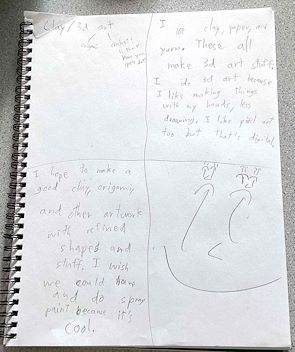 Clay/3d art
I use clay, paper, and
yarn. These all
make 3d art stuff.
I do 3d art because
I like making things
with my hands, less
drawings. I like pixel art
too but that's digital.
I hope to make a
good clay, origami,
and other artwork
with refined
shapes and
stuff. I wish
we could have
and do spray
paint because it's
cool.